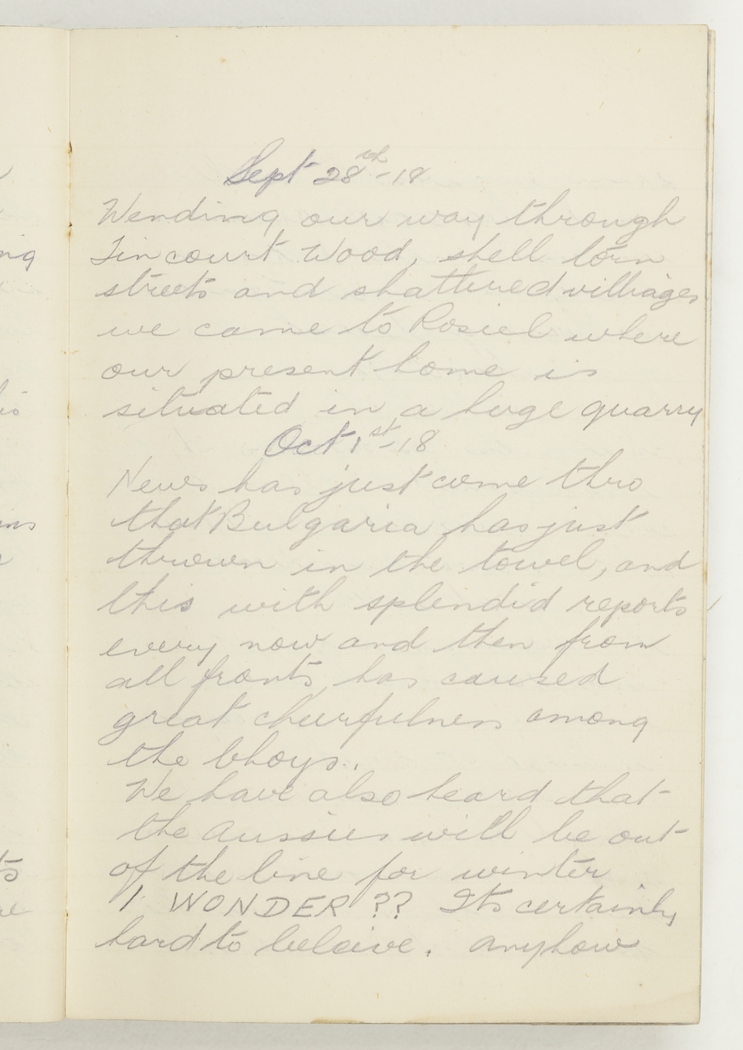 Sept 28th-18
Wending our way through
Tincourt Wood, shell torn
streets and shattered villiages
we came to Rosiel where
our present home is
situated in a huge quarry
Oct 1st-18
News has just come thro
that Bulgaria has just
thrown in the towel, and
this with splendid reports
every now and then from
all fronts has caused
great cheerfulness among
the bhoys.
We have also heard that
the Aussies will be out
of the line for winter
I WONDER ?? Its certainly
hard to beleive. anyhow